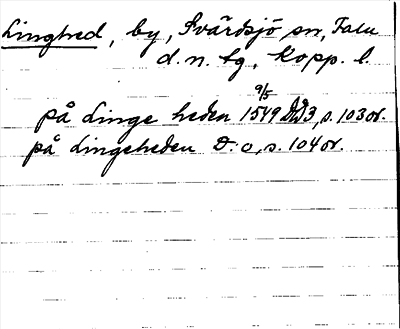 Linghed, by, Svärdsjö sn, Falu
d. n. tg, Kopp. l.
på Linge heden 1549 9/5 DD3, s. 103 or.
på Lingeheden D:o, s. 104 or.